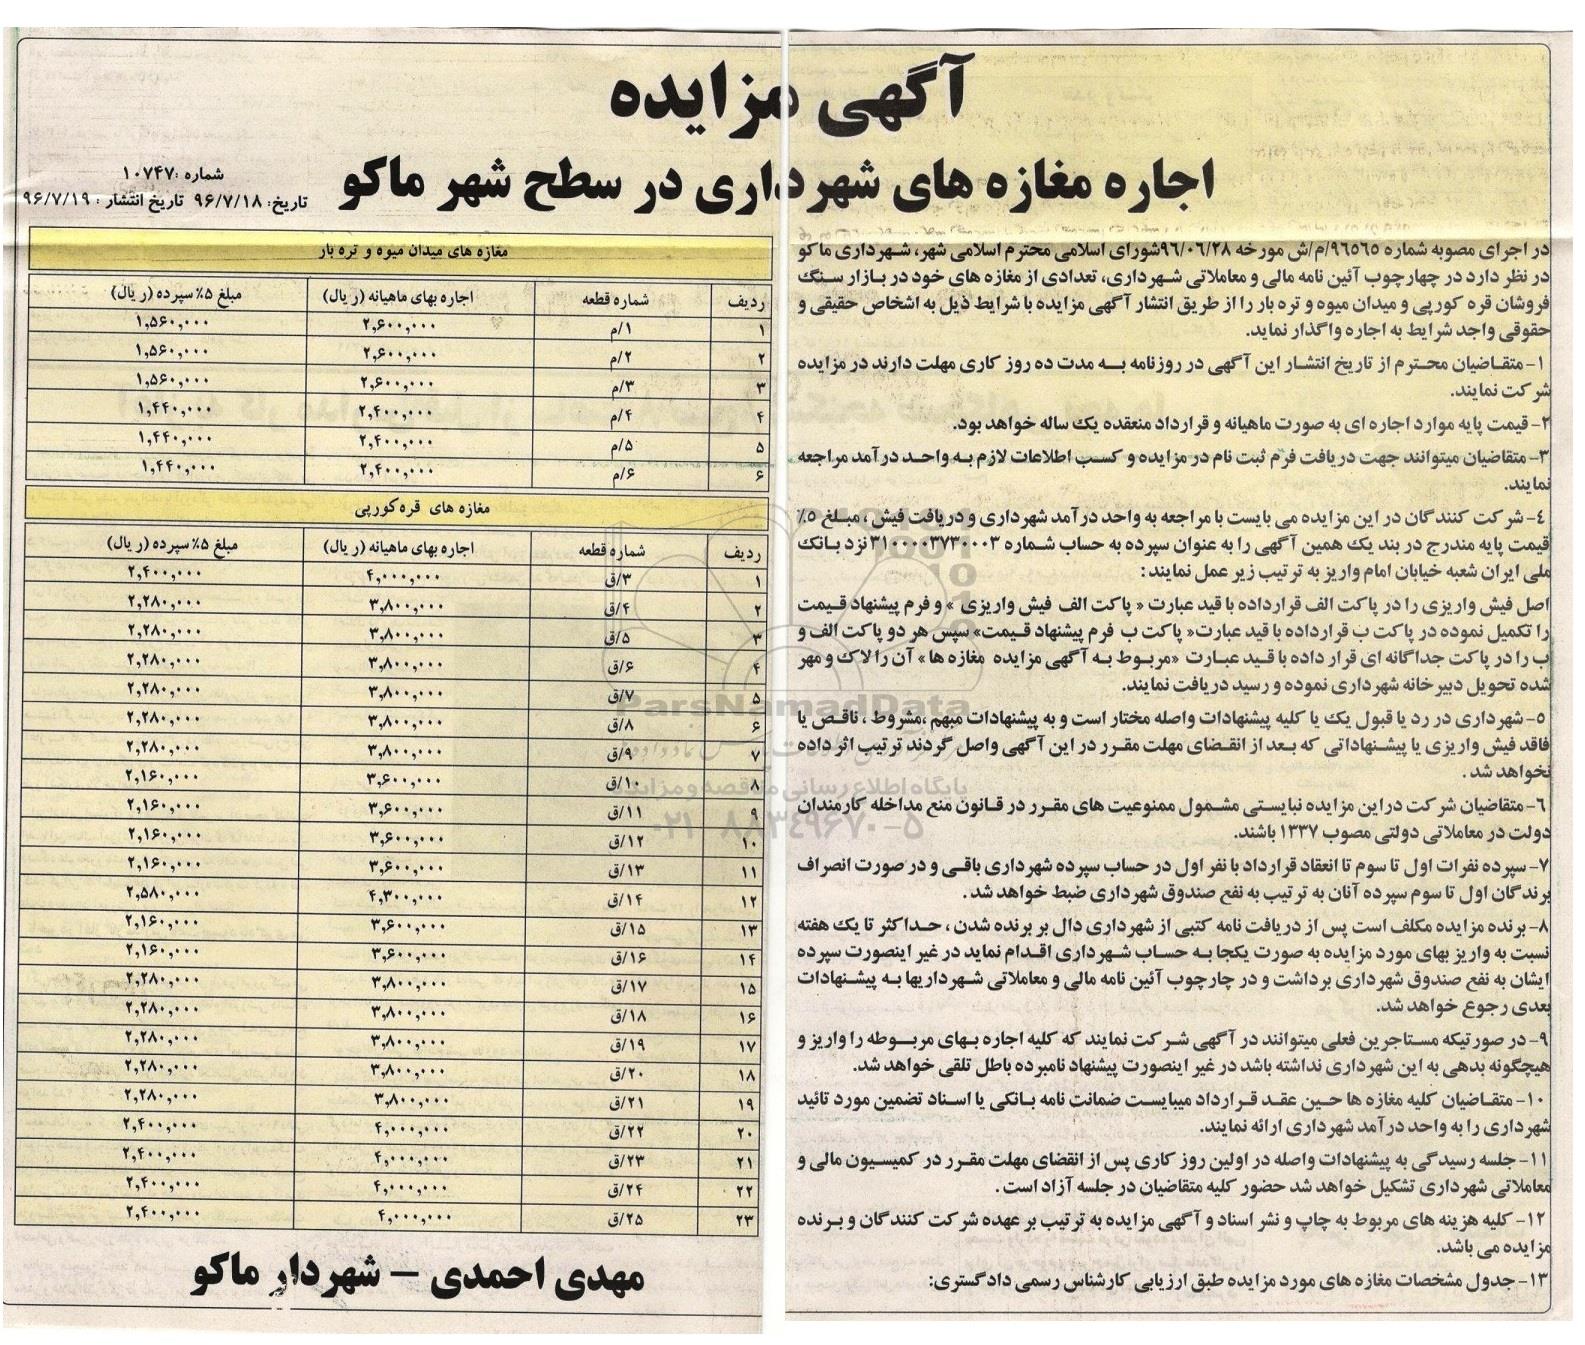 آگهی مزایده
اجاره مغازه های شهرداری در سطح شهر ماکو
شماره :۱۰۷۴۷
تاریخ: ۹۶/۷/۱۸ تاریخ انتشار : ۹۶/۷/۱۹
در اجرای مصوبه شماره ۹۶۵۶۵/م/ش مورخه ۹۶/۰۶/۲۸شورای اسلامی محترم اسلامی شهر، شهرداری ماکو
در نظر دارد در چهارچوب آئین نامه مالی و معاملاتی شهرداری، تعدادی از مغازه های خود در بازار سنگ
فروشان قره کورپی و میدان میوه و تره بار را از طریق انتشار آگهی مزایده با شرایط ذیل به اشخاص حقیقی و
حقوقی واجد شرایط به اجاره واگذار نماید.
۱- متقاضیان محترم از تاریخ انتشار این آگهی در روزنامه به مدت ده روز کاری مهلت دارند در مزایده
شرکت نمایند.
۲- قیمت پایه موارد اجاره ای به صورت ماهیانه و قرارداد منعقده یک ساله خواهد بود.
۳- متقاضیان میتوانند جهت دریافت فرم ثبت نام در مزایده و کسب اطلاعات لازم به واحد درآمد مراجعه
نمایند.
۴- شرکت کنندگان در این مزایده می بایست با مراجعه به واحد درآمد شهرداری و دریافت فیش ، مبلغ ۵٪
قیمت پایه مندرج در بند یک همین آگهی را به عنوان سپرده به حساب شماره ۳۱۰۰۰۰۳۷۳۰۰۰۳ نزد بانک
ملی ایران شعبه خیابان امام واریز به ترتیب زیر عمل نمایند :
اصل فیش واریزی را در پاکت الف قرارداده با قید عبارت « پاکت الف فیش واریزی » و فرم پیشنهاد قیمت
را تکمیل نموده در پاکت ب قرارداده با قید عبارت« پاکت ب فرم پیشنهاد قیمت» سپس هر دو پاکت الف و
ب را در پاکت جداگانه ای قرار داده با قید عبارت «مربوط به آگهی مزایده مغازه ها» آن را لاک و مهر
شده تحویل دبیرخانه شهرداری نموده و رسید دریافت نمایند.
۵- شهرداری در رد یا قبول یک یا کلیه پیشنهادات واصله مختار است و به پیشنهادات مبهم ،مشروط ، ناقص یا
فاقد فیش واریزی یا پیشنهاداتی که بعد از انقضای مهلت مقرر در این آگهی واصل گردند ترتیب اثر داده
نخواهد شد .
۶- متقاضیان شرکت دراین مزایده نبایستی مشمول ممنوعیت های مقرر در قانون منع مداخله کارمندان
دولت در معاملاتی دولتی مصوب ۱۳۳۷ باشند.
۷- سپرده نفرات اول تا سوم تا انعقاد قرارداد با نفر اول در حساب سپرده شهرداری باقی و در صورت انصراف
برندگان اول تا سوم سپرده آنان به ترتیب به نفع صندوق شهرداری ضبط خواهد شد .
۸- برنده مزایده مکلف است پس از دریافت نامه کتبی از شهرداری دال بر برنده شدن ، حداکثر تا یک هفته
نسبت به واریز بهای مورد مزایده به صورت یکجا به حساب شهرداری اقدام نماید در غیر اینصورت سپرده
ایشان به نفع صندوق شهرداری برداشت و در چارچوب آئین نامه مالی و معاملاتی شهرداریها به پیشنهادات
بعدی رجوع خواهد شد.
۹- در صورتیکه مستاجرین فعلی میتوانند در آگهی شرکت نمایند که کلیه اجاره بهای مربوطه را واریز و
هیچگونه بدهی به این شهرداری نداشته باشد در غیر اینصورت پیشنهاد نامبرده باطل تلقی خواهد شد.
۱۰- متقاضیان کلیه مغازه ها حین عقد قرارداد میبایست ضمانت نامه بانکی یا اسناد تضمین مورد تائید
شهرداری را به واحد درآمد شهرداری ارائه نمایند.
۱۱- جلسه رسیدگی به پیشنهادات واصله در اولین روز کاری پس از انقضای مهلت مقرر در کمیسیون مالی و
معاملاتی شهرداری تشکیل خواهد شد حضور کلیه متقاضیان در جلسه آزاد است .
۱۲- کلیه هزینه های مربوط به چاپ و نشر اسناد و آگهی مزایده به ترتیب بر عهده شرکت کنندگان و برنده
مزایده می باشد.
۱۳- جدول مشخصات مغازه های مورد مزایده طبق ارزیابی کارشناس رسمی دادگستری:
مغازه های میدان میوه و تره بار
ردیف شماره قطعه اجاره بهای ماهیانه (ریال) مبلغ ۵٪سپرده (ریال)
۱ ۱/م ۲,۶۰۰,۰۰۰ ۱,۵۶۰,۰۰۰
۲ ۲/م ۲,۶۰۰,۰۰۰ ۱,۵۶۰,۰۰۰
۳ ۳/م ۲,۶۰۰,۰۰۰ ۱,۵۶۰,۰۰۰
۴ ۴/م ۲,۴۰۰,۰۰۰ ۱,۴۴۰,۰۰۰
۵ ۵/م ۲,۴۰۰,۰۰۰ ۱,۴۴۰,۰۰۰
۶ ۶/م ۲,۴۰۰,۰۰۰ ۱,۴۴۰,۰۰۰
مغازه های قره کورپی
ردیف شماره قطعه اجاره بهای ماهیانه (ریال) مبلغ ۵٪سپرده (ریال)
۱ ۳/ق ۴,۰۰۰,۰۰۰ ۲,۴۰۰,۰۰۰
۲ ۴/ق ۳,۸۰۰,۰۰۰ ۲,۲۸۰,۰۰۰
۳ ۵/ق ۳,۸۰۰,۰۰۰ ۲,۲۸۰,۰۰۰
۴ ۶/ق ۳,۸۰۰,۰۰۰ ۲,۲۸۰,۰۰۰
۵ ۷/ق ۳,۸۰۰,۰۰۰ ۲,۲۸۰,۰۰۰
۶ ۸/ق ۳,۸۰۰,۰۰۰ ۲,۲۸۰,۰۰۰
۷ ۹/ق ۳,۸۰۰,۰۰۰ ۲,۲۸۰,۰۰۰
۸ ۱۰/ق ۳,۶۰۰,۰۰۰ ۲,۱۶۰,۰۰۰
۹ ۱۱/ق ۳,۶۰۰,۰۰۰ ۲,۱۶۰,۰۰۰
۱۰ ۱۲/ق ۳,۶۰۰,۰۰۰ ۲,۱۶۰,۰۰۰
۱۱ ۱۳/ق ۳,۶۰۰,۰۰۰ ۲,۱۶۰,۰۰۰
۱۲ ۱۴/ق ۴,۳۰۰,۰۰۰ ۲,۵۸۰,۰۰۰
۱۳ ۱۵/ق ۳,۶۰۰,۰۰۰ ۲,۱۶۰,۰۰۰
۱۴ ۱۶/ق ۳,۶۰۰,۰۰۰ ۲,۱۶۰,۰۰۰
۱۵ ۱۷/ق ۳,۸۰۰,۰۰۰ ۲,۲۸۰,۰۰۰
۱۶ ۱۸/ق ۳,۸۰۰,۰۰۰ ۲,۲۸۰,۰۰۰
۱۷ ۱۹/ق ۳,۸۰۰,۰۰۰ ۲,۲۸۰,۰۰۰
۱۸ ۲۰/ق ۳,۸۰۰,۰۰۰ ۲,۲۸۰,۰۰۰
۱۹ ۲۱/ق ۳,۸۰۰,۰۰۰ ۲,۲۸۰,۰۰۰
۲۰ ۲۲/ق ۴,۰۰۰,۰۰۰ ۲,۴۰۰,۰۰۰
۲۱ ۲۳/ق ۴,۰۰۰,۰۰۰ ۲,۴۰۰,۰۰۰
۲۲ ۲۴/ق ۴,۰۰۰,۰۰۰ ۲,۴۰۰,۰۰۰
۲۳ ۲۵/ق ۴,۰۰۰,۰۰۰ ۲,۴۰۰,۰۰۰
مهدی احمدی - شهردار ماکو
ParsNamadData
پایگاه اطلاع رسانی مناقصه و مزایده
۰۲۱-۸۸۳۴۹۶۷۰-۵